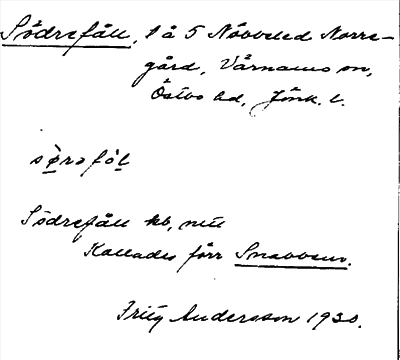 Södrefåll, 1 å 5 Nöbbeled Norre-
gård, Värnamo sn,
Östbo hd, Jönk. l.
sø̀rəfól
Södrefåll hb, nu
Kallades förr Snabben.
Fritz Andersson 1930.